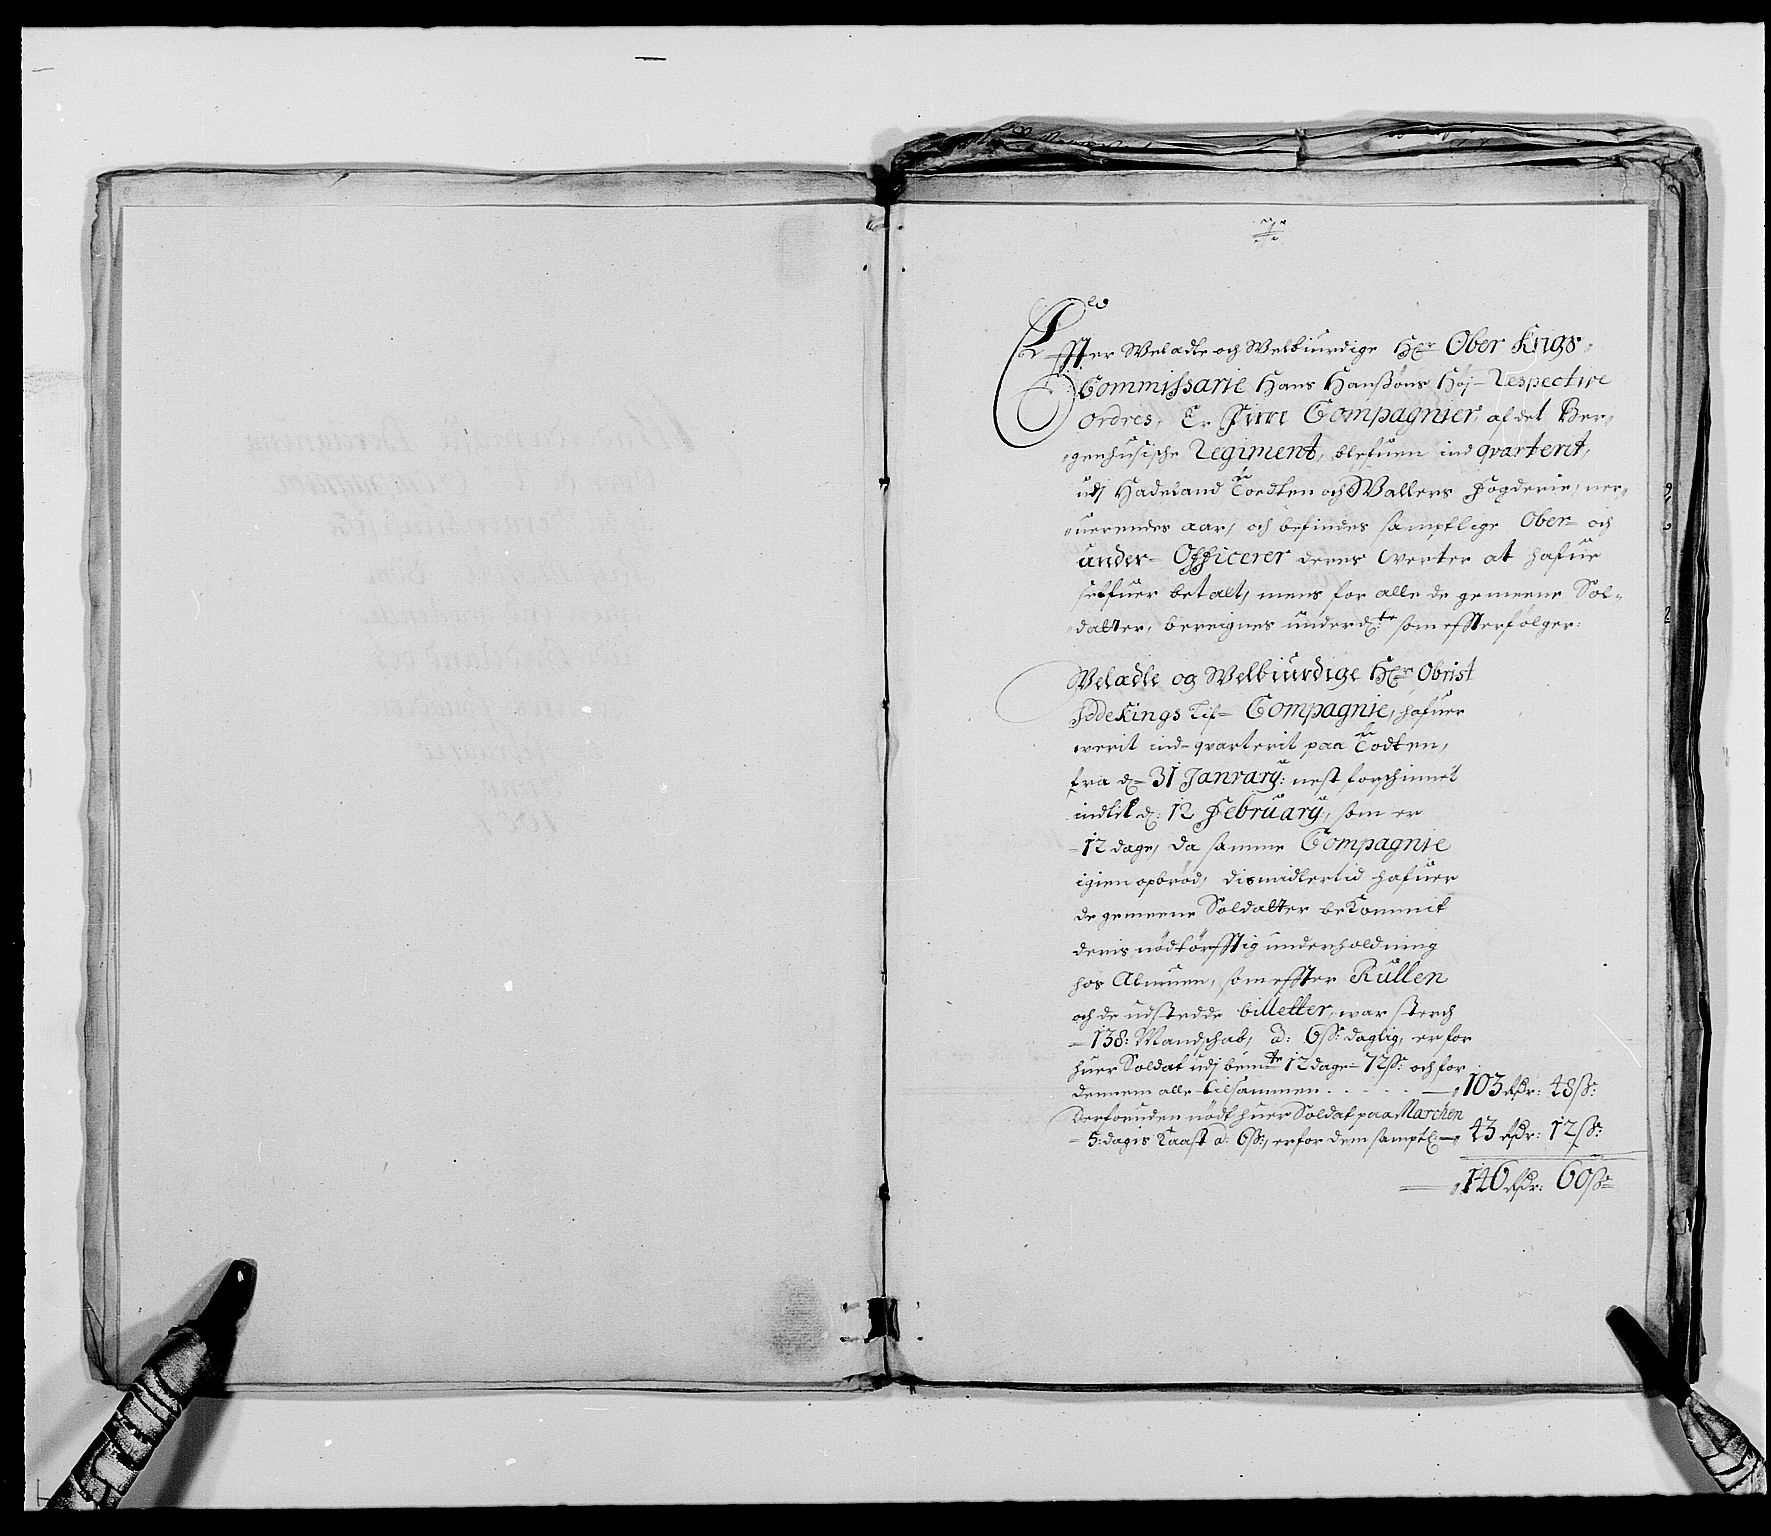 Effter Weladle och Welbiurdige Hr Ober Krigs-
Commissarie Hans Hanssøns Høj-Respective
ordres, Er Fire Compagnier, af det Ber-
genhusische Regiment, blefuen ind qvarterit,
udj Hadeland Todten och Wallers Fogderie, ner-
uerendes aar, och befindes samptlige Ober- och
under- Officerer deres qverter at hafue
selfuer betalt, mens for alle de gemeene Sol-
dalter, bereignes underd:te som effterfølger:
Weladle og Welbiurdige Hr Obrist
Compagnie, hafuer
werit ind-qvarterit paa Todten,
fra d- 31 January: nest forschinnet
indtil d: 12 February, som er
12 dage, da samme Compagnie
igien opbrød, Dismidlertid hafuer
de gemeene Soldalter bekommit
deris nødtørfftig underholdning
hos Almuen, som effter Rullen
och de udstedde billetter, war sterch
138: Mandschab, a: 6 ss: daglig, er for
huer Soldat udj bem:te 12 dage- 72 ss: och for
dennem alle tilsammen - - - - 103 rdr: 48 ss:
Derforuden nødt huer Soldat paa Marchen
5: dagis Kaast a: 6 ss:, er for dem samptl: 43 rdr: 12 ss:
146 rdr: 60 ss: